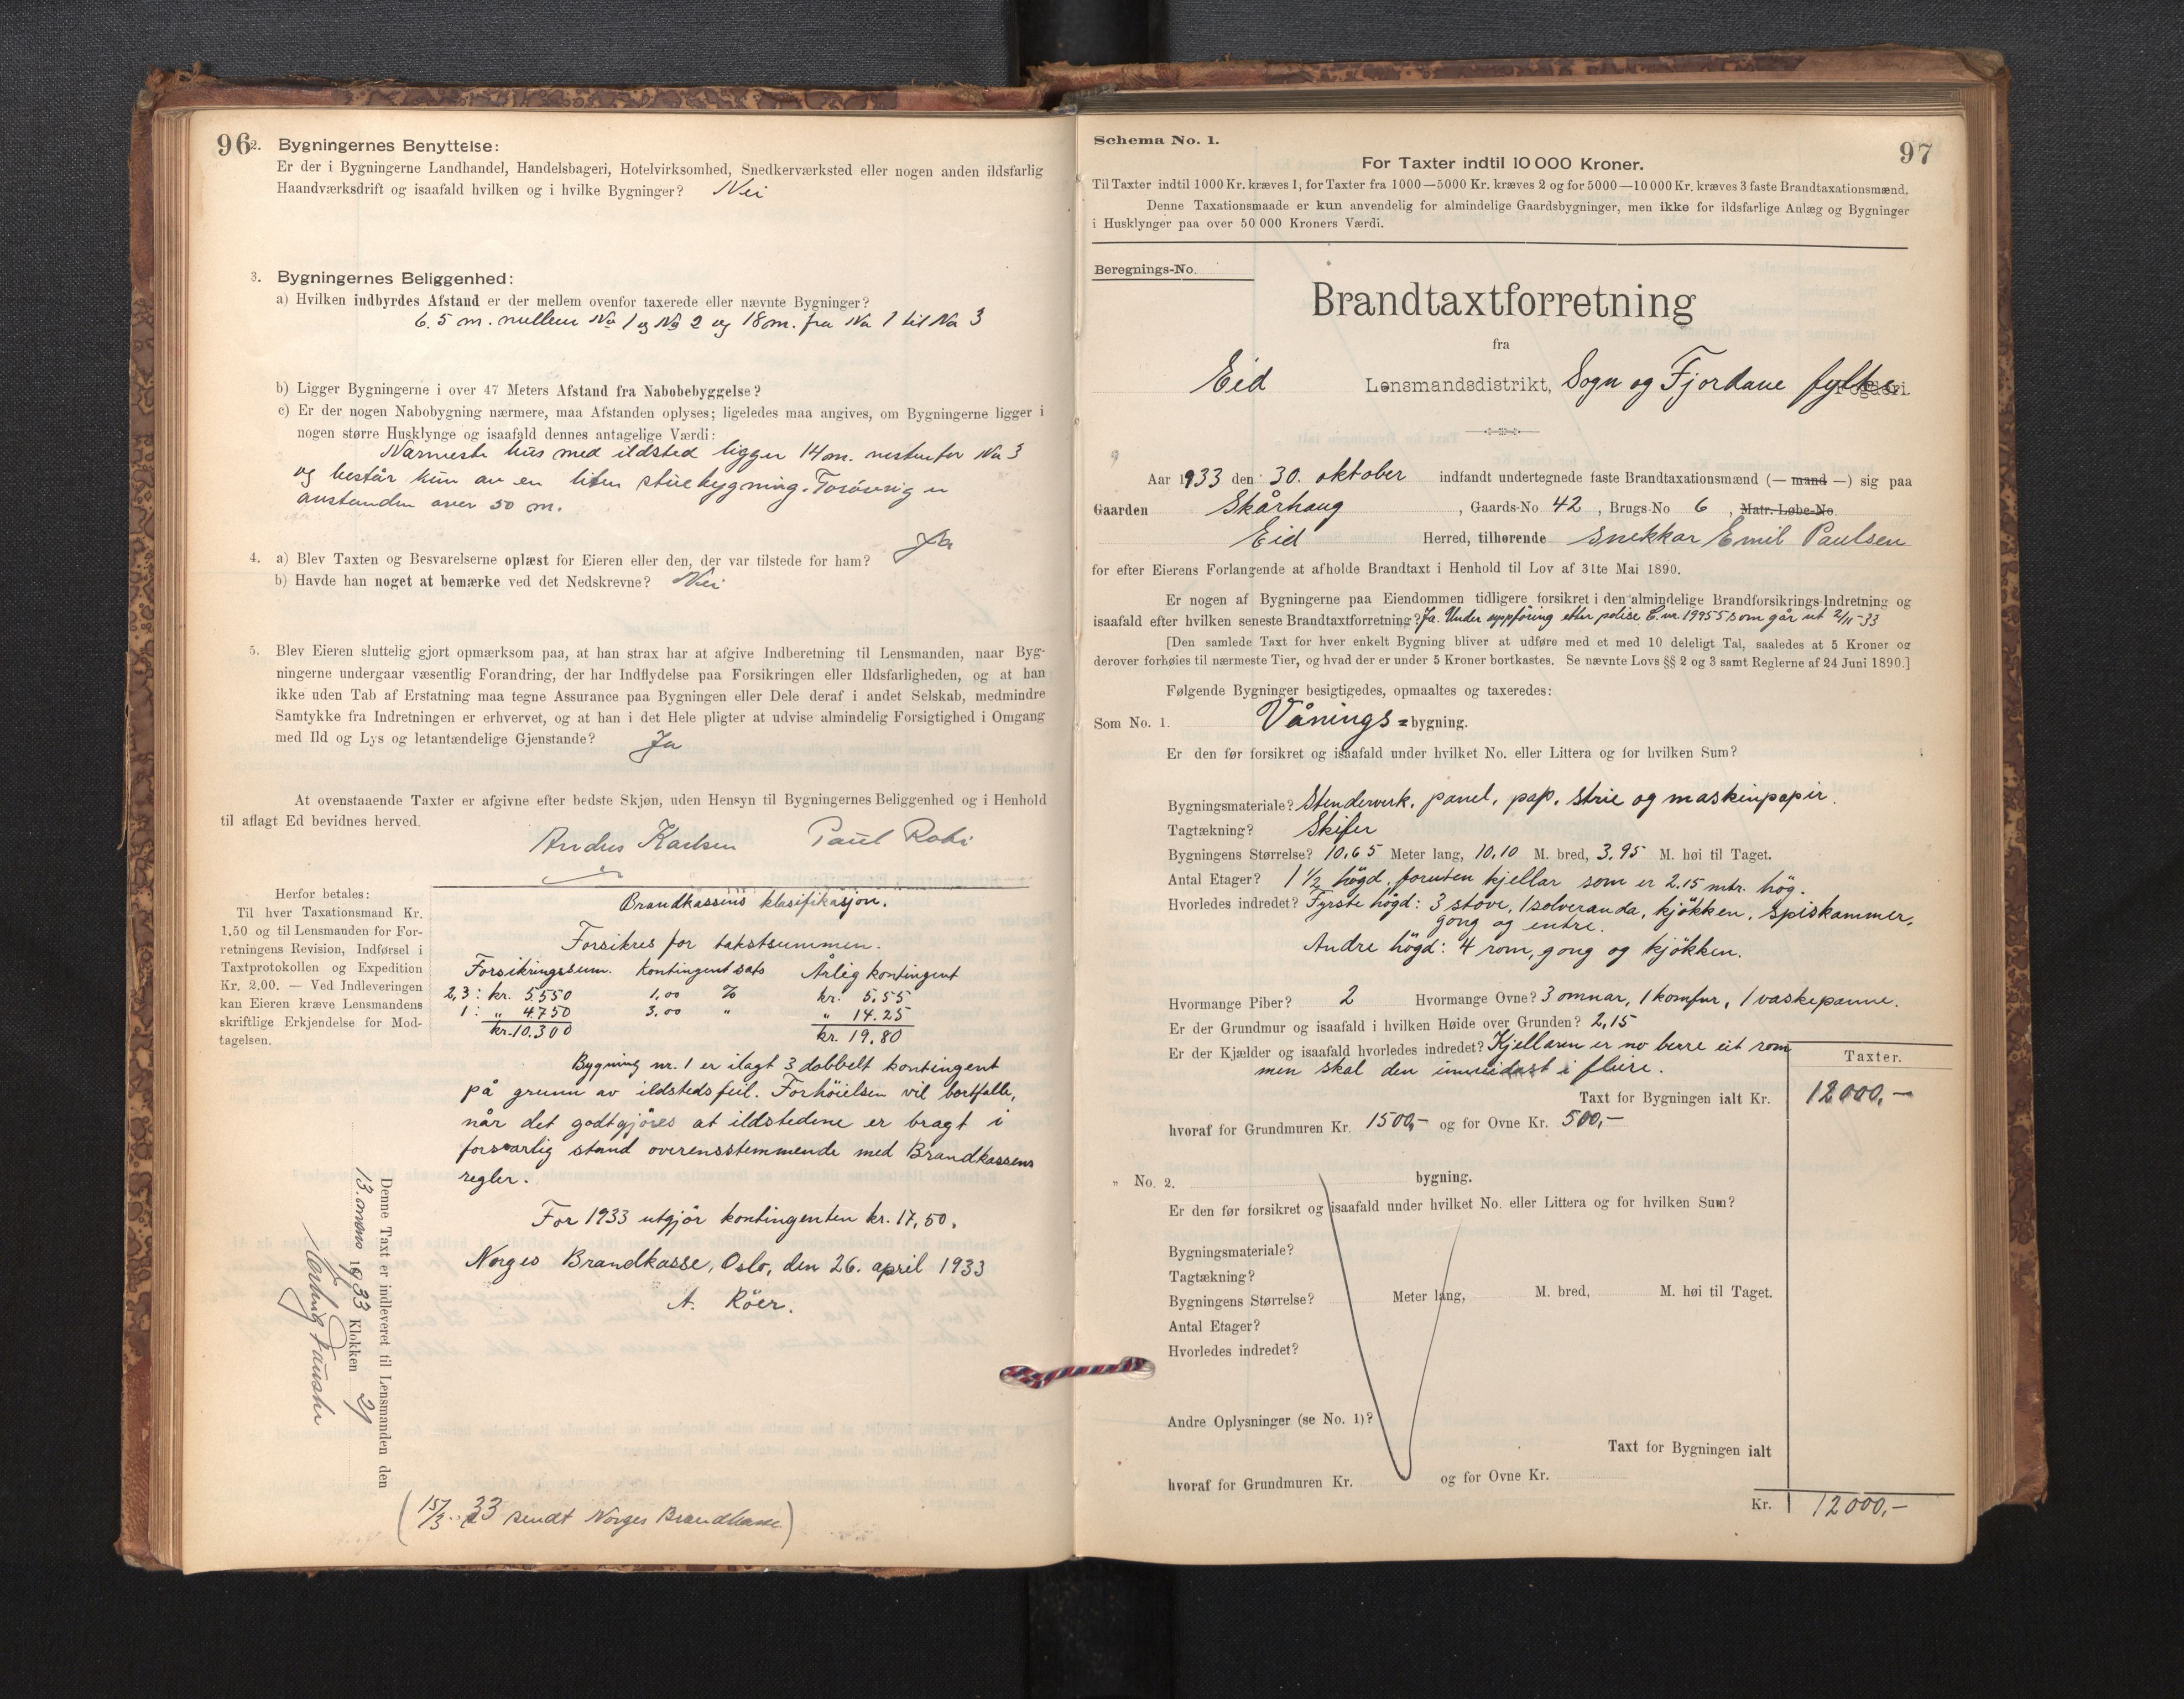 96
2. Bygningernes Benyttelse:
Er der i Bygningerne Landhandel, Handelsbageri, Hotelvirksomhed, Snedkerværksted eller nogen anden ildsfarlig
Haandværksdrift og isaafald hvilken og i hvilke Bygninger? Nei
3. Bygningernes Beliggenhed:
a) Hvilken indbyrdes Afstand er der mellem ovenfor taxerede eller nævnte Bygninger?
6.5 m. mellem No 1 og No 2 og 18 m. fra No 1 til No 3
b) Ligger Bygningerne i over 47 Meters Afstand fra Nabobebyggelse?
c) Er der nogen Nabobygning nærmere, maa Afstanden oplyses; ligeledes maa angives, om Bygningerne ligger i
nogen større Husklynge og isaafald dennes antagelige Værdi:
Nærmeste hus med ildsted ligger 14 m. vestenfor No 3
og består kun av en liten stuebygning. Forøvrig er
avstanden over 50 m.
4. a) Blev Taxten og Besvarelserne oplæst for Eieren eller den, der var tilstede for ham? Ja
b) Havde han noget at bemærke ved det Nedskrevne? Nei
5. Blev Eieren sluttelig gjort opmærksom paa, at han strax har at afgive Indberetning til Lensmanden, naar Byg-
ningerne undergaar væsentlig Forandring, der har Indflydelse paa Forsikringen eller Ildsfarligheden, og at han
ikke uden Tab af Erstatning maa tegne Assurance paa Bygningen eller Dele deraf i andet Selskab, medmindre
Samtykke fra Indretningen er erhvervet, og at han i det Hele pligter at udvise almindelig Forsigtighed i Omgang
med Ild og Lys og letantændelige Gjenstande? Ja
At ovenstaaende Taxter er afgivne efter bedste Skjøn, uden Hensyn til Bygningernes Beliggenhed og i Henhold
til aflagt Ed bevidnes herved.
Anders Karlsen Paul Robi
Herfor betales:
Til hver Taxationsmand Kr.
1,50 og til Lensmanden for For-
retningens Revision, Indførsel i
Taxtprotokollen og Expedition
Kr. 2.00. — Ved Indleveringen
kan Eieren kræve Lensmandens
skriftlige Erkjendelse for Mod-
tagelsen.
Brandkassens klasifikasjon.
Forsikres for takstsummen.
Forsikringssum. Kontingentsats Årlig kontingent
2,3: kr. 5550 1,00 ‰ kr. 5,55
1: " 4750 3,00 " " 14.25
kr. 10.300 kr. 19,80
Bygning nr. 1 er ilagt 3 dobbelt kontingent
på grunn av ildstedsfeil. Forhöielsen vil bortfalle,
når det godtgjöres at ildstedene er bragt i
forsvarlig stand overensstemmende med Brandkassens
regler.
For 1933 utgjör kontingenten kr. 17,50.
Norges Brandkasse, Oslo, den 26. april 1933
A. Röer.
Denne Taxt er indleveret til Lensmanden den
13. mars 1933 Klokken 21
(15/3. 33 sendt Norges Brandkasse)
97
Schema No. 1.
For Taxter indtil 10 000 Kroner.
Til Taxter indtil 1000 Kr. kræves 1, for Taxter fra 1000—5000 Kr. kræves 2 og for 5000—10 000 Kr. kræves 3 faste Brandtaxationsmænd.
Denne Taxationsmaade er kun anvendelig for almindelige Gaardsbygninger, men ikke for ildsfarlige Anlæg og Bygninger
i Husklynger paa over 50 000 Kroners Værdi.
Beregnings-No.
Brandtaxtforretning
fra
Eid Lensmandsdistrikt, Sogn og Fjordane fylke Fogderi.
Aar 1933 den 30. oktober indfandt undertegnede faste Brandtaxationsmænd (— mand —) sig paa
Gaarden Skårhaug, Gaards-No 42, Brugs-No 6, Matr. Løbe-No.
Eid Herred, tilhørende snekkar Emil Paulsen
for efter Eierens Forlangende at afholde Brandtaxt i Henhold til Lov af 31te Mai 1890.
Er nogen af Bygningerne paa Eiendommen tidligere forsikret i den almindelige Brandforsikrings-Indretning og
isaafald efter hvilken seneste Brandtaxtforretning? Ja. Under uppföring etter polise C.nr. 19955 som går ut 2/11-33
[Den samlede Taxt for hver enkelt Bygning bliver at udføre med et med 10 deleligt Tal, saaledes at 5 Kroner og
derover forhøies til nærmeste Tier, og hvad der er under 5 Kroner bortkastes. Se nævnte Lovs §§ 2 og 3 samt Reglerne af 24 Juni 1890.]
Følgende Bygninger besigtigedes, opmaaltes og taxeredes:
Som No. 1. Vånings=bygning.
Er den før forsikret og isaafald under hvilket No. eller Littera og for hvilken Sum?
Bygningsmateriale? Stenderverk, panel, pap, strie og maskinpapir.
Tagtækning? Skifer
Bygningens Størrelse? 10,65 Meter lang, 10,10 M. bred, 3,95 M. høi til Taget.
Antal Etager? 1 1/2 högd, foruten kjellar som er 2.15 mtr. høg.
Hvorledes indredet? Fyrste högd: 3 stover, 1 solveranda, kjökken, spiskammer,
gong og entre.
Andre högd: 4 rom, gong og kjökken.
Hvormange Piber? 2 Hvormange Ovne? 3 omnar, 1 komfur, 1 vaskepanne.
Er der Grundmur og isaafald i hvilken Høide over Grunden? 2,15
Er der Kjælder og isaafald hvorledes indredet? Kjellaren er no berre eit rom
men skal den innreidast i fleire.
Taxter.
Taxt for Bygningen ialt Kr. 12000,-
hvoraf for Grundmuren Kr. 1500,- og for Ovne Kr. 500,-
" No. 2. bygning.
Er den før forsikret og isaafald under hvilket No. eller Littera og for hvilken Sum?
Bygningsmateriale?
Tagtækning?
Bygningens Størrelse? Meter lang, M. bred, M. høi til Taget.
Antal Etager?
Hvorledes indredet?
Andre Oplysninger (se No. 1)?
Taxt for Bygningen ialt
hvoraf for Grundmuren Kr. og for Ovne Kr.
Kr. 12000,-